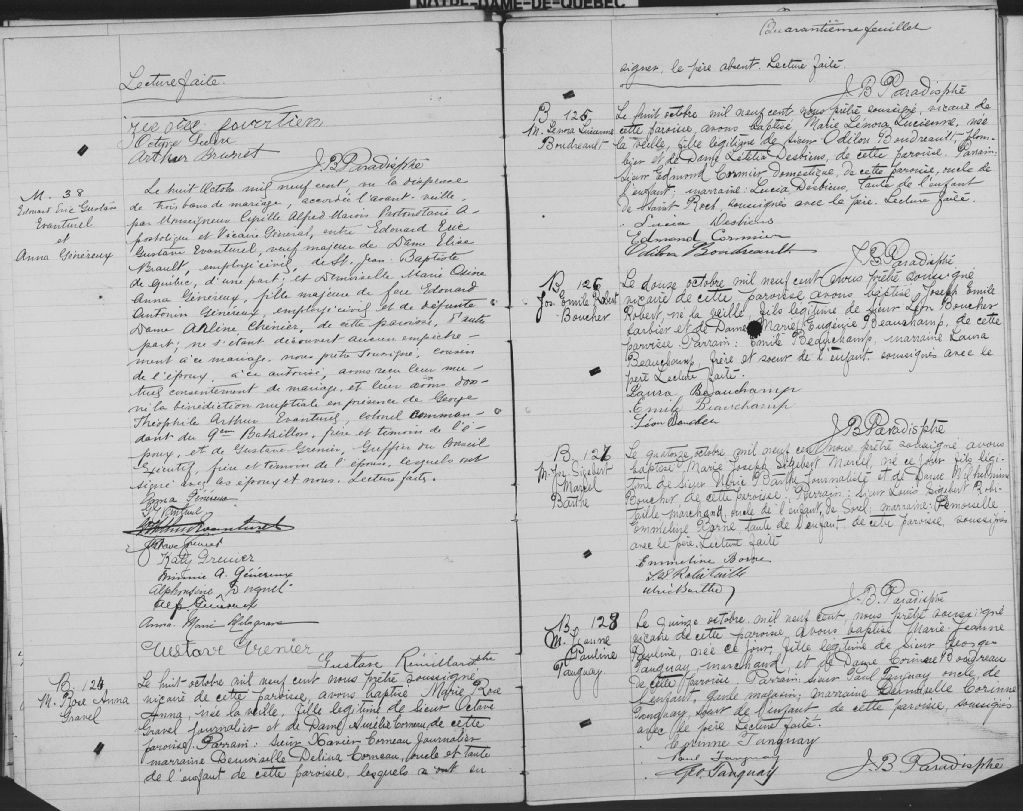 NOTRE-DAME-DE-QUÉBEC
Lecture faite.
Octave
Arthur Brunet
J. B. Paradis ptre
M. 38
Edouard Eric Gustave
Evanturel
et
Anna Généreux
Le huit Octobre mil neuf cent, vu la dispense
de trois bans de mariage, accordée l'avant-veille,
par Monseigneur Cyrille Alfred Marois Protonotaire A-
postolique et Vicaire Général, entre Edouard Eric
Gustave Evanturel, veuf majeur de Dame Elise
Brault, employé civil, de St. Jean-Baptiste
de Québec, d'une part; et Demoiselle Marie
Anna Généreux, fille majeure de feu Edouard
Antonin Généreux, employé civil et de défunte
Dame Chénier, de cette paroisse, d'autre
part; ne s'étant découvert aucun empêche-
ment à ce mariage, nous prêtre soussigné, cousin
de l'époux, à ce autorisé, avons reçu leur mu-
tuel consentement de mariage, et leur avons don-
né la bénédiction nuptiale en présence de George
Théophile Arthur Evanturel, colonel comman-
dant du 9em Bataillon, frère et témoin de l'é-
poux, et de Gustave Grenier, Greffier du Conseil
Exécutif, témoin de l'épouse, lesquels ont
signé avec les époux et nous. Lecture faite.
Anna Généreux
Gustave Grenier
Katy Grenier
Minnie A. Généreux
Alphonsine
Alf Généreux
Anna Marie
Gustave Grenier
Gustave Rémillard ptre
B. 124
M. Rose Anna
Gravel
Le huit octobre mil neuf cent nous prêtre soussigné,
vicaire de cette paroisse, avons baptisé Marie Rose
Anna, née la veille, fille légitime de Sieur Octave
Gravel journalier et de Dame Amélie Comeau, de cette
paroisse. Parrain: Sieur Xavier Comeau journalier
marraine Demoiselle Delina Comeau, oncle et tante
de l'enfant de cette paroisse, lesquels n'ont su
Quarantième feuillet
signer, le père absent. Lecture faite.
J. B. Paradis ptre
B. 125
M. Lenora Lucienne
Boudreault
Le huit octobre mil neuf cent nous prêtre soussigné, vicaire de
cette paroisse, avons baptisé Marie Lénora Lucienne, née
la veille, fille légitime de sieur Odilon Boudreault, plom-
bier et de Dame Letitia Desbiens, de cette paroisse. Parrain:
Sieur Edmond Cormier, domestique, de cette paroisse, oncle de
l'enfant, marraine: Lucia Desbiens, tante de l'enfant
de Saint Roch, soussignés avec le père. Lecture faite.
Lucia Desbiens
Edmond Cormier
Odilon Boudreault
J. B. Paradis ptre
B. 126
Jos. Emile Robert
Boucher
Le douze octobre mil neuf cent nous prêtre soussigné
vicaire de cette paroisse avons baptisé Joseph Emile
Robert, né la veille, fils légitime de sieur Léon Boucher
barbier et de Dame Marie Eugénie Beauchamp, de cette
paroisse Parrain: Emile Beauchamp, marraine Laura
Beauchamp, frère et soeur de l'enfant soussignés avec le
père Lecture faite.
Laura Beauchamp
Emile Beauchamp
Léon Boucher
J. B. Paradis ptre
B. 127
M. Jos Sigebert
Marcel
Barthe
Le quatorze octobre mil neuf cent nous prêtre soussigné avons
baptisé Marie Joseph Sigebert Marcel, né ce jour fils légi-
time de Sieur Ulric Barthe Journaliste et de Dame Wilhelmine
Boucher de cette paroisse: Parrain: sieur Louis Sigebert Robi-
taille marchand, oncle de l'enfant, de Sorel, marraine: Demoiselle
Emmeline Borne tante de l'enfant de cette paroisse soussignés
avec le père. Lecture faite
Emmeline Borne
L. S. Robitaille
Ulric Barthe
J. B. Paradis ptre
B. 128
M. Jeanne
Pauline
Tanguay
Le quinze octobre, mil neuf cent, nous prêtre soussigné
vicaire de cette paroisse avons baptisé Marie Jeanne
Pauline, née ce jour, fille légitime de sieur George
Tanguay, marchand, et de Dame Corinne Boudreau
de cette paroisse. Parrain Sieur Paul Tanguay oncle de
l'enfant, garde magasin; marraine Demoiselle Corinne
Tanguay, soeur de l'enfant de cette paroisse, soussignés
avec le père Lecture faite.
Corinne Tanguay
Paul Tanguay
Geo. Tanguay
J. B. Paradis ptre